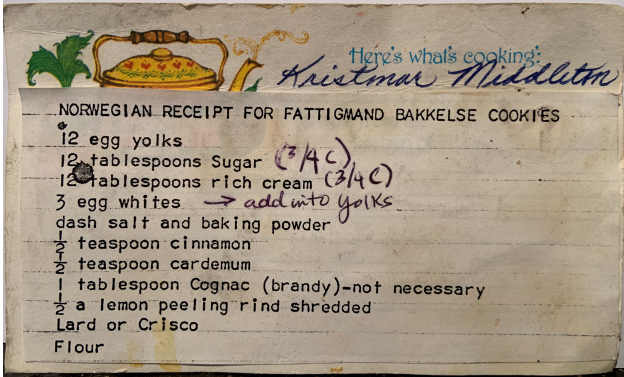 Here's what's cooking:
Kristmar Middleton
NORWEGIAN RECEIPT FOR FATTIGMAND BAKKELSE COOKIES
12 egg yolks
12 tablespoons Sugar (3/4 C)
12 tablespoons rich cream (3/4 C)
3 egg whites → add into yolks
dash salt and baking powder
1/2 teaspoon cinnamon
1/2 teaspoon cardemum
1 tablespoon Cognac (brandy)-not necessary
1/2 a lemon peeling rind shredded
Lard or Crisco
Flour